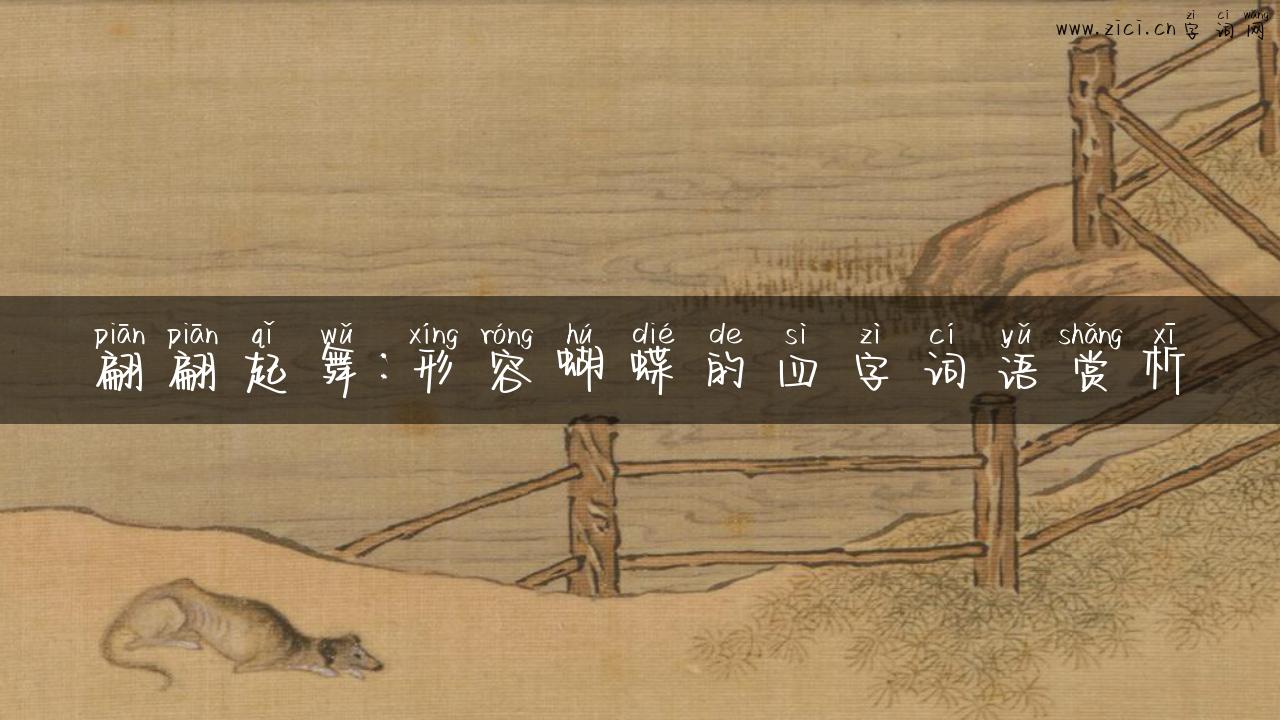 zì cí wǎng
www.zici.cn 字词网
piān piān qǐ wǔ xíng róng hú dié de sì zì cí yǔ shǎng xī
翩翩起舞:形容蝴蝶的四字词语赏析